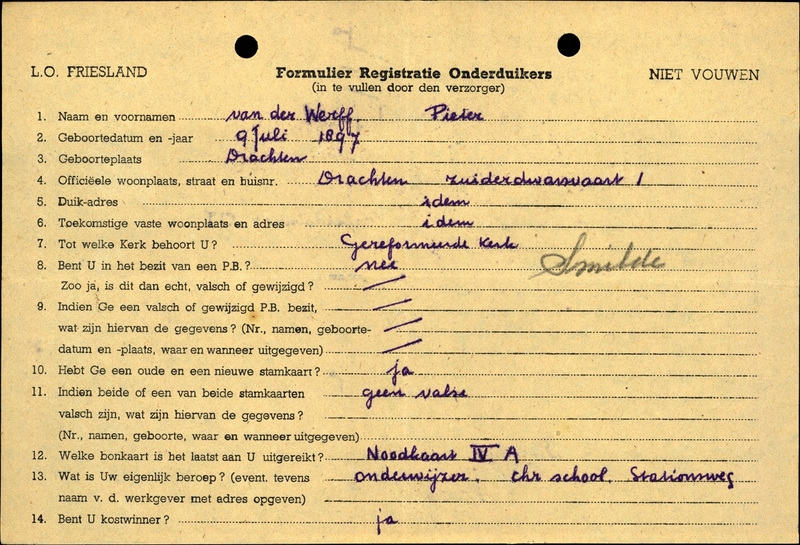 L.O. FRIESLAND Formulier Registratie Onderduikers NIET VOUWEN
(in te vullen door den verzorger)
1. Naam en voornamen van der Werff. Pieter
2. Geboortedatum en -jaar 9 Juli 1897
3. Geboorteplaats Drachten
4. Officiëele woonplaats, straat en huisnr. Drachten zuiderdwarsvaart 1
5. Duik-adres idem
6. Toekomstige vaste woonplaats en adres idem
7. Tot welke Kerk behoort U? Gereformeerde Kerk
8. Bent U in het bezit van een P.B.? nee Smilde
Zoo ja, is dit dan echt, valsch of gewijzigd?
9. Indien Ge een valsch of gewijzigd P.B. bezit,
wat zijn hiervan de gegevens? (Nr., namen, geboorte-
datum en -plaats, waar en wanneer uitgegeven)
10. Hebt Ge een oude en een nieuwe stamkaart? ja
11. Indien beide of een van beide stamkaarten geen valse
valsch zijn, wat zijn hiervan de gegevens?
(Nr., namen, geboorte, waar en wanneer uitgegeven)
12. Welke bonkaart is het laatst aan U uitgereikt? Noodkaart IV A
13. Wat is Uw eigenlijk beroep? (event. tevens onderwijzer. Chr school. Stationsweg
naam v. d. werkgever met adres opgeven)
14. Bent U kostwinner? ja